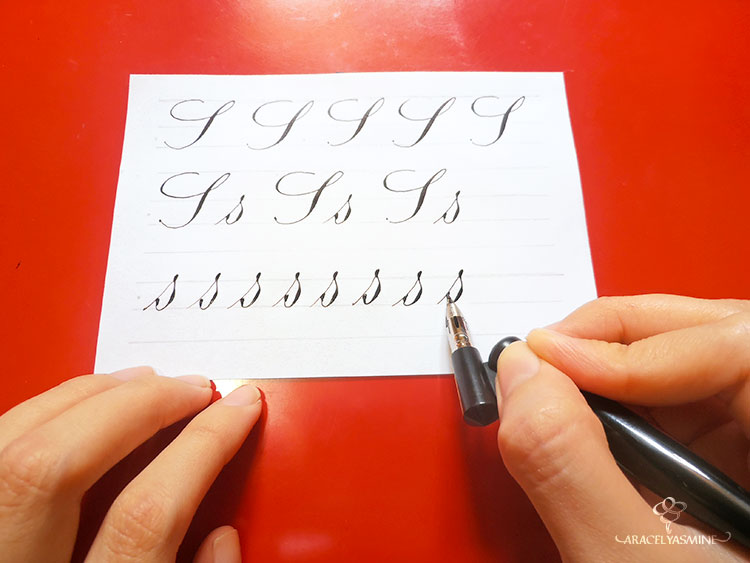 S S S S S
Ss Ss Ss
s s s s s s s s
ARACELYASMINE